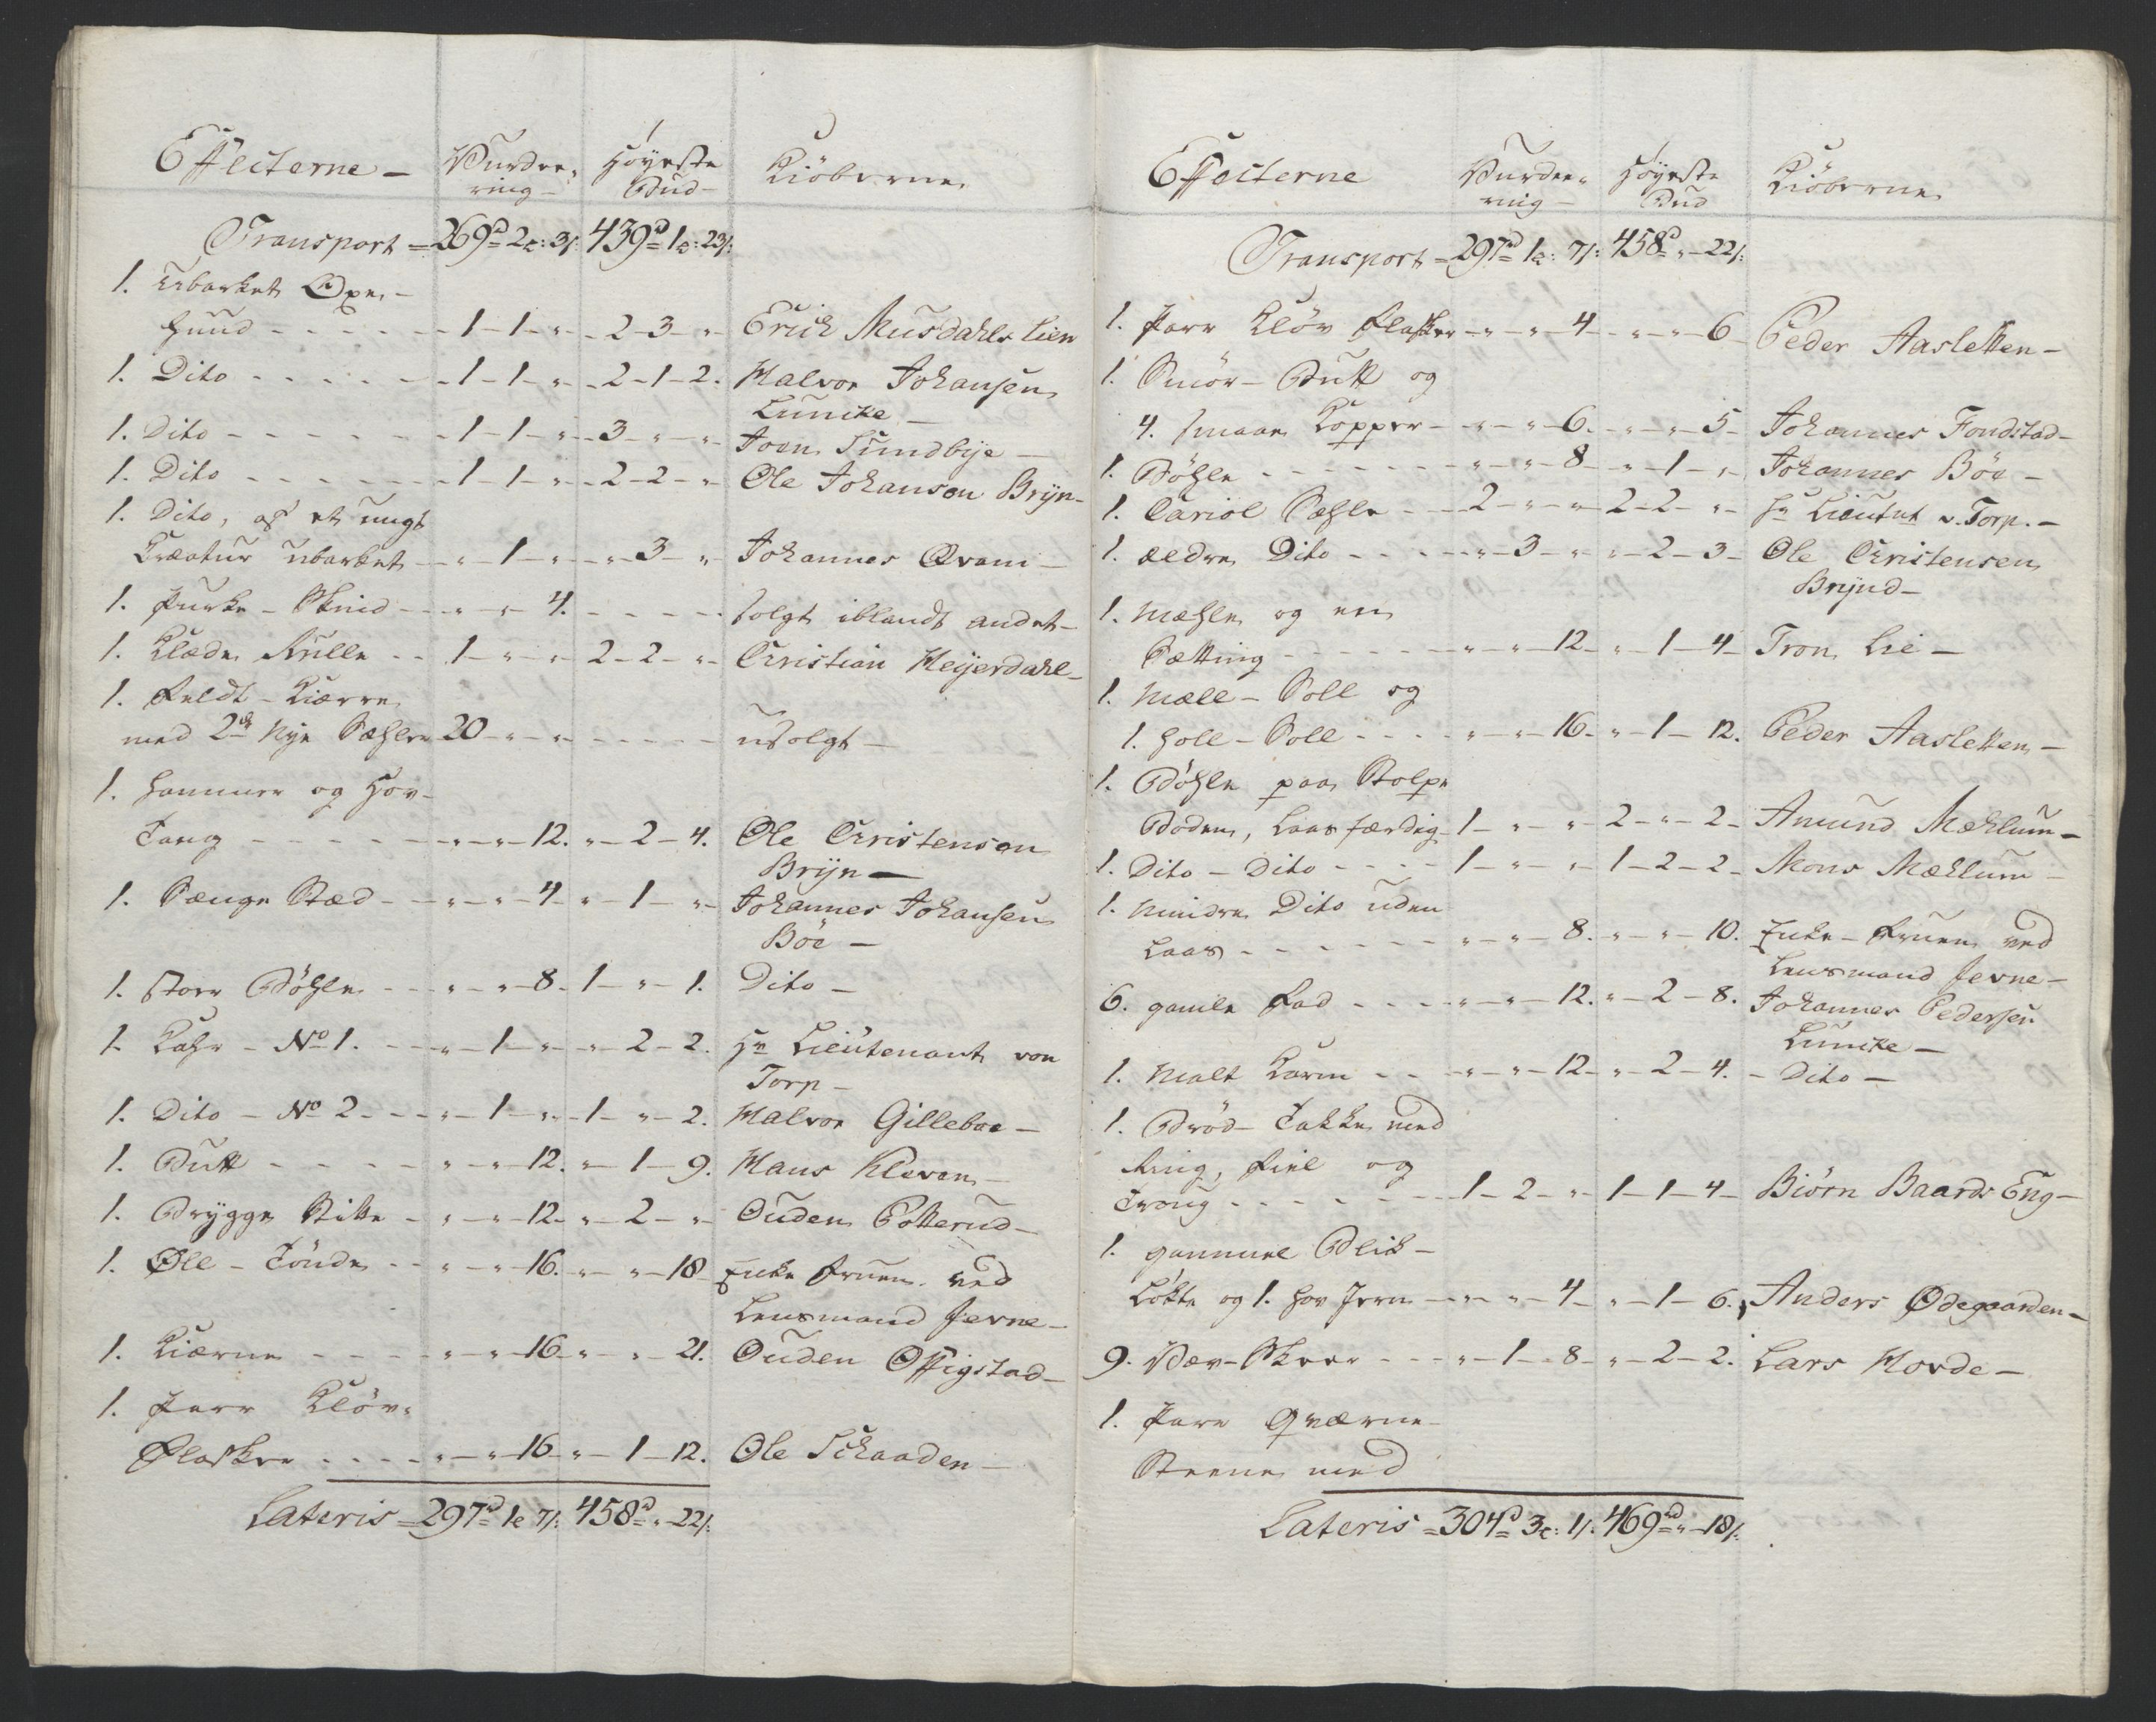 Effecterne - Vurdee- Høyeste Kiöberne
ring - Bud -
Transport = 269d 2c: 3s: 439d 1c: 23s:
1. Ubarket Oxe -
Huud - - - - - 1 - 1 - " - 2 - 3 - " - Erich Musdahls Lien
1. Dito - - - - - 1 - 1 - " - 2 - 1 - 2. Halvor Johansen
Luncke -
1. Dito - - - - - 1 - 1 - " - 3 - " - " - Joen Sundbye -
1. Dito - - - - - 1 - 1 - " - 2 - 2 - " - Ole Johanson Bryn -
1. Dito, af et ungt
Creatur ubarket - " - 1 - " - " - 3 - " - Johannes Qvam -
1. Purke - Skind - " - " - 4. - - - - solgt iblandt andet -
1. Klæde Rulle - - 1 - " - " - 2 - 2 - " - Christian Heyerdahl -
1. Feldt - Kiærre
med 2de Nye Sæhler 20 - " - " - - - - usolgt -
1. Hammer og Hov -
Tang - - - - - " - " - 12. " - 2 - 4. Ole Christenson
Bryn -
1. Sænge Stæd - - " - " - 4 - " - 1 - " - Johannes Johansen
Böe -
1. Stor Böhle - - " - " - 8. 1 - " - 1. Dito -
1. Kahr - No 1. - - " - 1 - " - " - 2 - 2. Hr Lieutenant von
Torp -
1. Dito - No 2 - - " - 1 - " - 1 - " - 2. Halvor Gilleboe -
1. Butt - - - - " - " - 12. " - 1 - 9. Hans Kleven -
1. Brygge Bitte - " - " - 12 - " - 2 - " - Ouden Potterud -
1. Øll - Tönde - - " - " - 16. " - " - 18 - Enke Fruen ved
Lensmand Jevne -
1. Kiærne - - - - " - " - 16 - " - " - 21. Ouden Offigstad -
1. Parr Klöv-
Flasker - - - - " - " - 16 - " - 1 - 12. Ole Schaaden -
Lateris = 297d 1c 7s: 458d " - 22s:
Effecterne Vurdee- Høyeste Kiöberne
ring - Bud
Transport = 297d 1c: 7s: 458d " - 22s:
1. Parr Klöv Flasker - " - " - 4 - " - " - 6 - Peder Aasletten -
1. Smör - Butt og
4. smaae Kopper - " - " - 6. - " - " - 5 - Johannes Fondstad -
1. Böhle - - - - - " - " - 8 - " - 1 - " - Johannes Böe -
1. Cariol Sæhle - - 2 - " - " - 2 - 2 - " - Hr Lieutnt v. Torp. -
1. ældre Dito - - - " - 3 - " - " - 2 - 3 - Ole Christensen
Brynd -
1. Mæhle og en
Sætting - - - - - " - " - 12 - " - 1 - 4 - Tron Lie -
1. Mæll - Soll og
1. Holl - Soll - - - " - " - 16 - " - 1 - 12. Peder Aasletten -
1. Böhle paa Stolpe
Boden, Laasfærdig - 1 - " - " - 2 - " - 2 - Amund Mæhlum -
1. Dito - Dito - - - - 1 - " - " - 1 - 2 - 2 - Mons Mæhlum -
1. mindre Dito uden
Laas - - - - - - " - " - 8. " - " - 10. Enke - Fruen ved
Lensmand Jevne -
6. gamle Fad - - - " - " - 12. " - 2 - 8. Johannes Pedersen
Luncke -
1. Malt Karm - - " - " - 12 - " - 2 - 4. - Dito -
1. Bröd - Takke med
Ring, Fiel og
Troug - - - - - 1 - 2 - " - 1 - 1 - 4 - Biörn Baards Eng -
1. gammel Blik -
Løkte og 1. Hov Jern - " - " - 4 - " - 1 - 6. Anders Ødegaarden -
9. Væv - Skeer - - - " - 1 - 8 - " - 2 - 2. Lars Hovde -
1. Parr Qværne -
Steene med
Lateris = 304d 3c: 1s: 469d " - 18s: